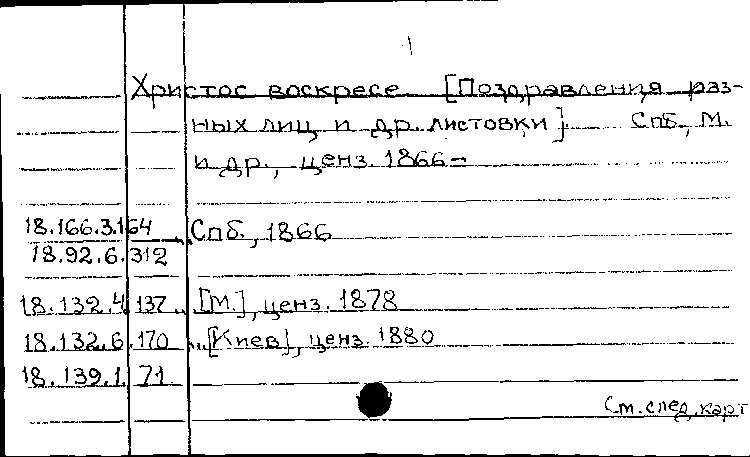 1
Христос воскресе [Поздравления раз-
ных лиц и др. листовки]. Спб., М.
и др., ценз. 1866-
18.166.3.164 Спб., 1866
18.92.6.312
18.132.4.137 [М.], ценз. 1878
18.132.6.170 [Киев], ценз. 1880
18.139.1.71
См. след. карт